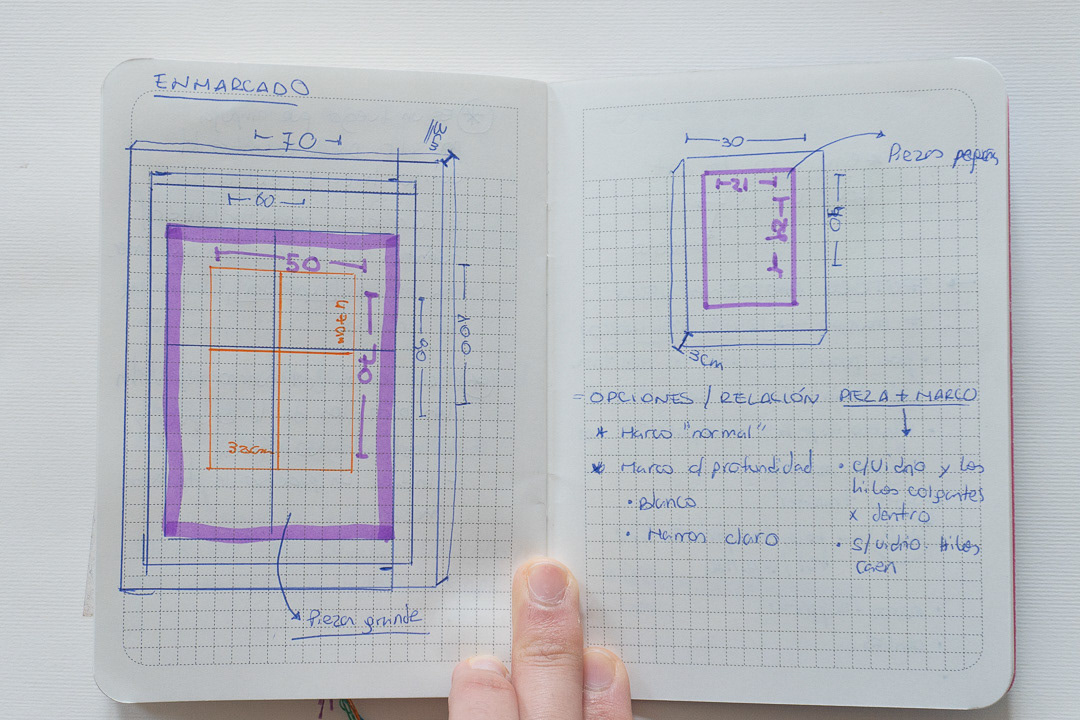 ENMARCADO
70
60
50
70
80
100
32cm
Pieza grande
30
Piezas
15
40
3cm
= OPCIONES / RELACIÓN PIEZA + MARCO
* Marco "normal"
* Marco c/ profundidad
• Blanco
• Marron claro
• c/vidrio y los
hilos colgantes
x dentro
• s/vidrio hilos
caen